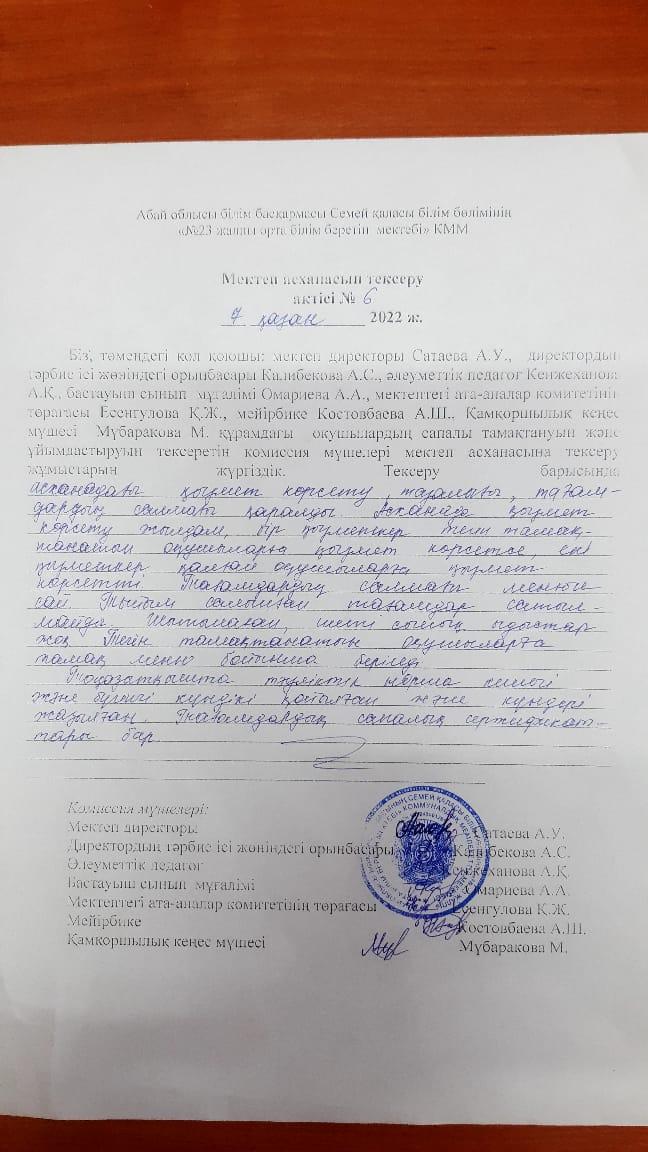 Абай облысы білім басқармасы Семей қаласы білім бөлімінің
«№23 жалпы орта білім беретін мектебі» КММ
Мектеп асханасын тексеру
актісі № 6
7 қазан 2022 ж.
Біз, төмендегі қол қоюшы: мектеп директоры Сатаева А.У., директордың
тәрбие ісі жөніндегі орынбасары Калибекова А.С., әлеуметтік педагог Кенжеханова
А.Қ., бастауыш сынып мұғалімі Омариева А.А., мектептегі ата-аналар комитетінің
төрағасы Есенгулова Қ.Ж., мейірбике Костовбаева А.Ш., Қамқоршылық кеңес
мүшесі Мұбаракова М. құрамдағы оқушылардың сапалы тамақтануын және
ұйымдастыруын тексеретін комиссия мүшелері мектеп асханасына тексеру
жұмыстарын жүргіздік. Тексеру барысында
асханадағы қызмет көрсету, тазалығы, тағам-
дардың салмағы қаралды. Асханада қызмет
көрсету жылдам, бір қызметкер тегін тамақ-
танатын оқушыларға қызмет көрсетсе, екі
қызметкер қалған оқушыларға қызмет
көрсетті. Тағамдардың салмағы менюге
сай. Тыйым салынған тағамдар сатыл-
майды. Шытынаған, шеті сынық ыдыстар
жоқ. Тегін тамақтанатын оқушыларға
тамақ меню бойынша беріледі.
Тоңазытқышта тәуліктік норма кешегі
және бүгінгі күндікі қойылған және күндері
жазылған. Тағамдардың сапалық сертификат-
тары бар
Комиссия мүшелері:
Мектеп директоры Сатаева А.У.
Директордың тәрбие ісі жөніндегі орынбасары Калибекова А.С.
Әлеуметтік педагог Кенжеханова А.Қ.
Бастауыш сынып мұғалімі Омариева А.А.
Мектептегі ата-аналар комитетінің төрағасы Есенгулова Қ.Ж.
Мейірбике Костовбаева А.Ш.
Қамқоршылық кеңес мүшесі Мұбаракова М.